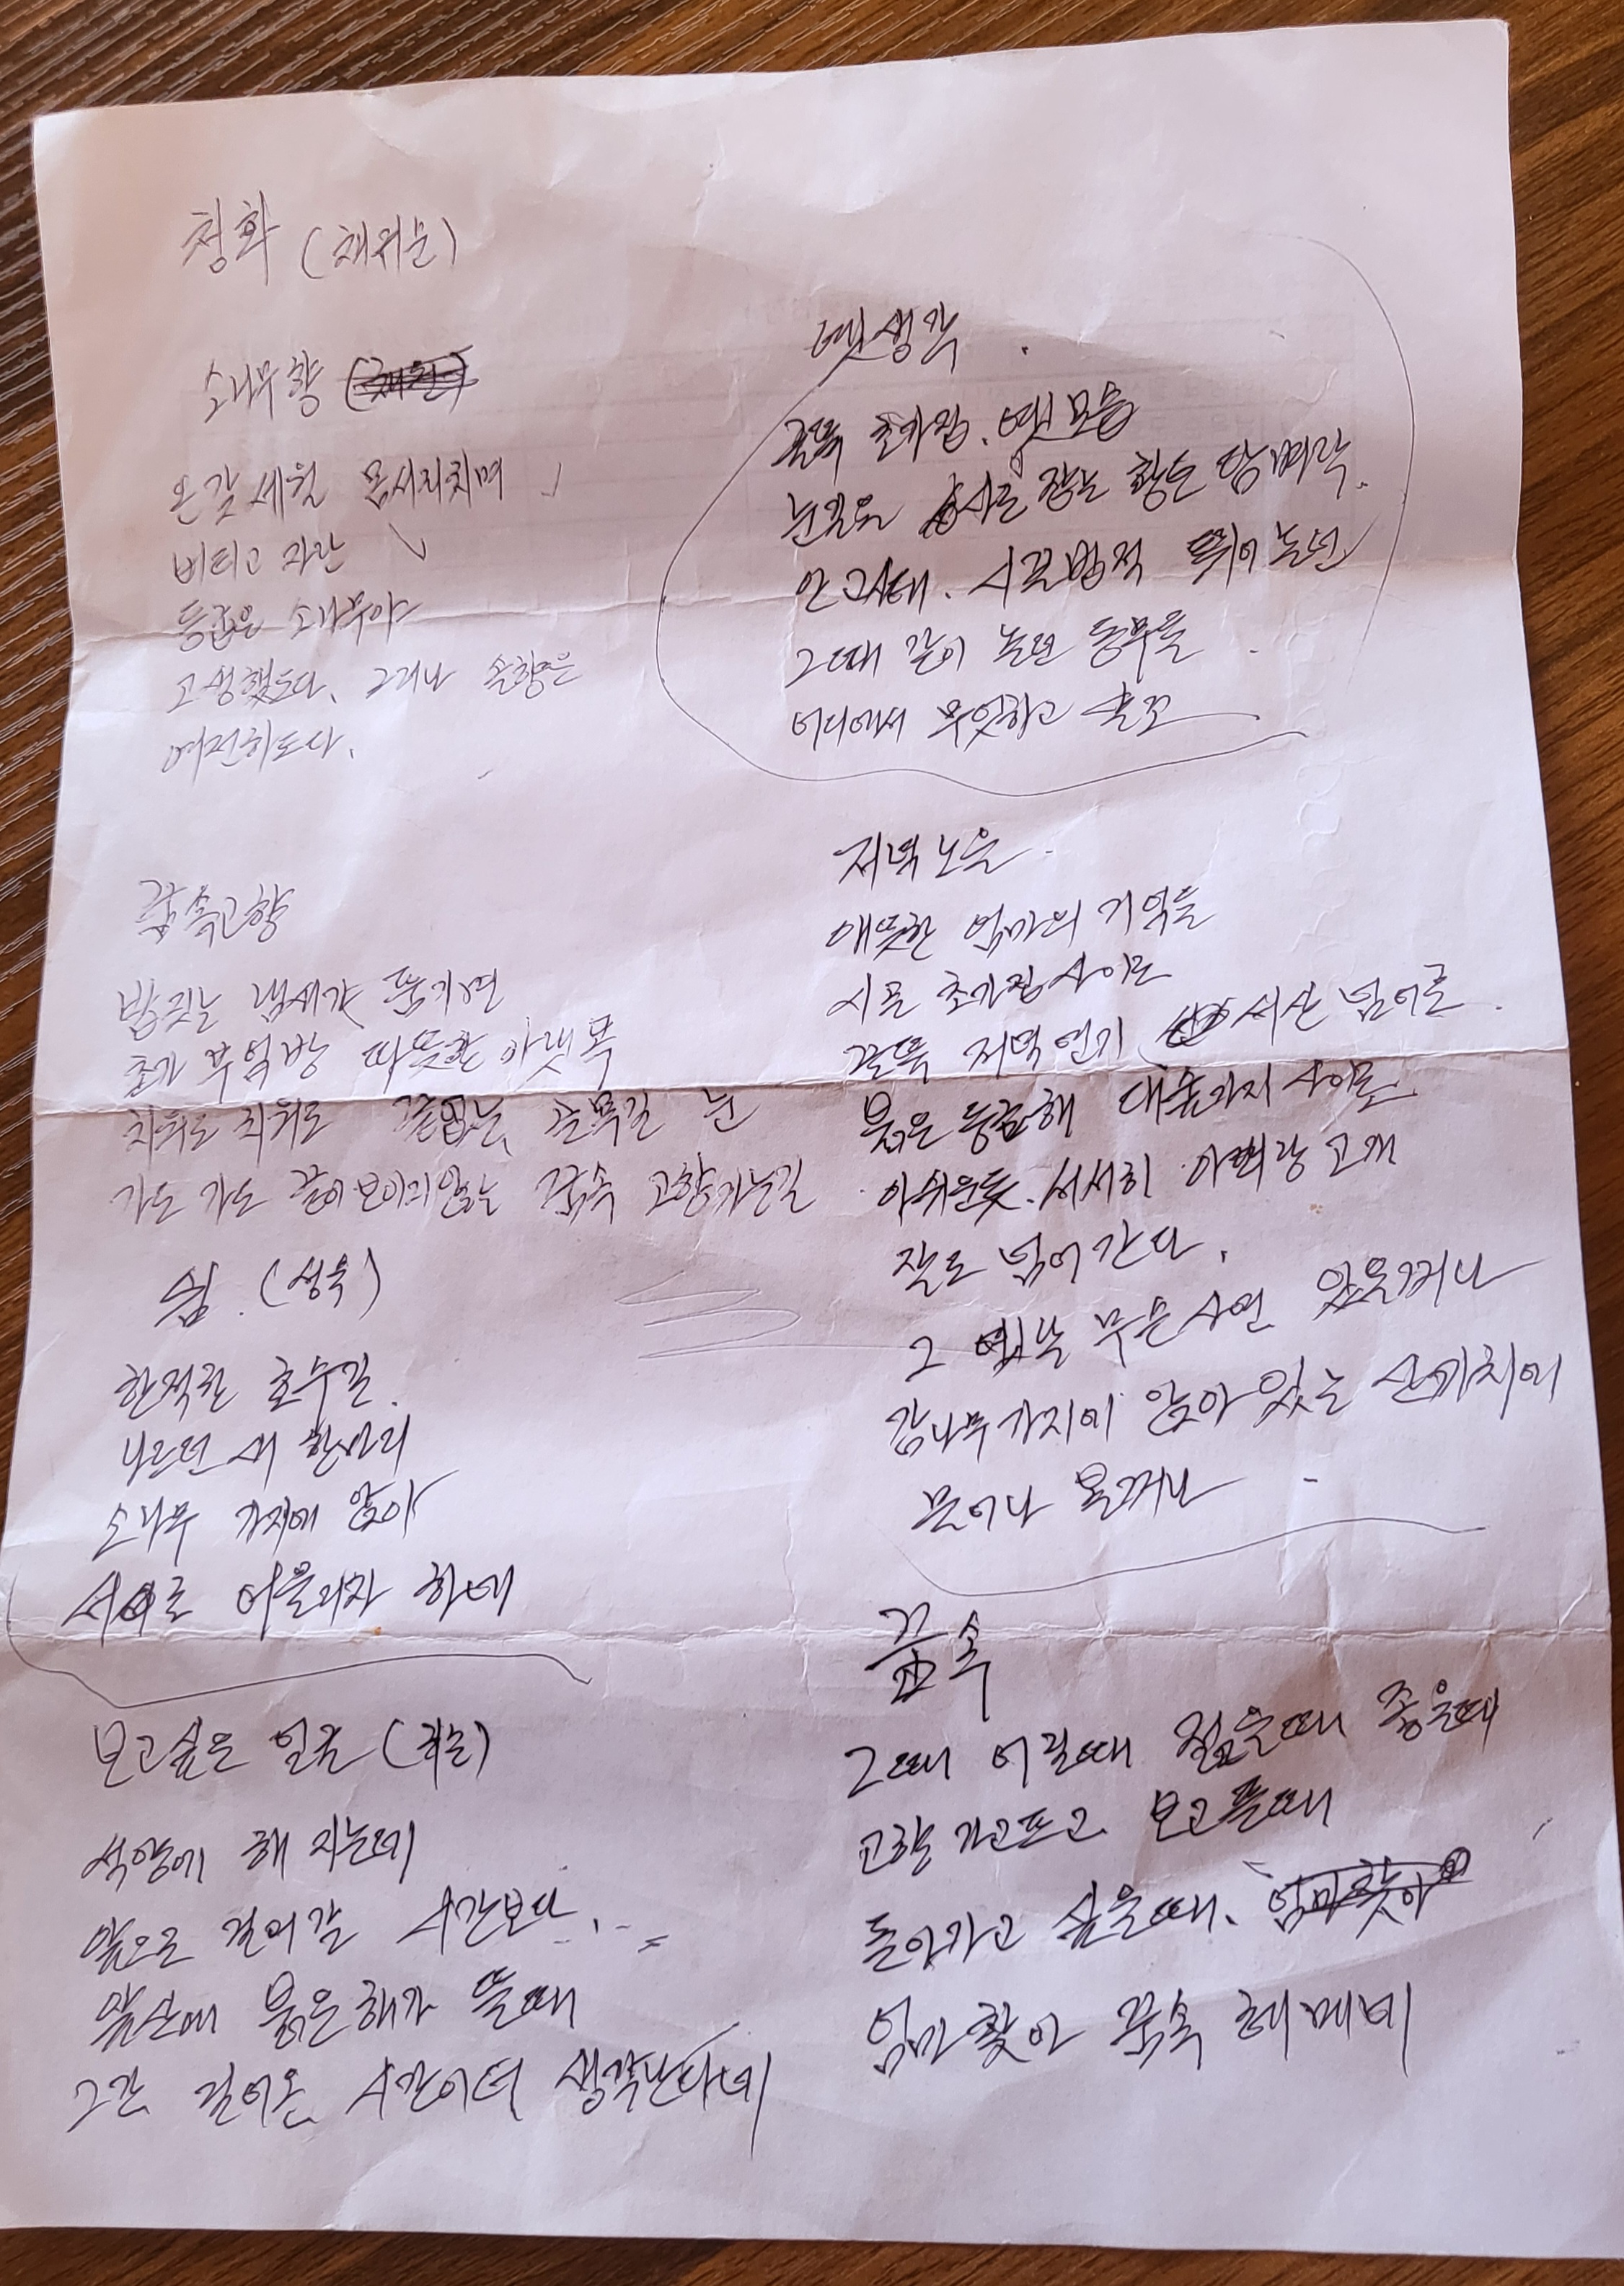 청화 (채위문)
소나무향
온갖 세월 몸서리치며
버티고 자란
등굽은 소나무야
고생했도다. 그러나 솔향은
여전하도다.
꿈속고향
밥짓는 냄새가 풍기면
초가 부엌방 따뜻한 아랫목
치워도 치워도 끝없는 골목길 눈
가도 가도 끝이 보이지않는 꿈속 고향가는길
쉼. (성욱)
한적한 호수길.
나르던 새 한마리
소나무 가지에 앉아
서로 어울리자 하네
보고싶은 얼굴
석양에 해 지는데
앞으로 걸어갈 시간보다...
앞산에 붉은해가 뜰때
그간 걸어온 시간이더 생각난다네
옛생각
굴뚝 초가집. 옛모습
황토 담벼락.
시골 뛰어 놀던
그때 같이 놀던 동무들
어디에서 무엇하고 솔꼬
저녁노을
애뜻한 엄마의 기억들
시골 초가집 사이로
굴뚝 저녁연기 서산 넘어로.
붉은 등근해 대솔가지 사이로
아쉬운듯. 서서히 아리랑 고개
잘도 넘어간다.
그 옛날 무슨사연 있을꺼나
감나무 가지에 앉아 있는 산까치에
물어나 볼꺼나
꿈속
그때 어릴때 젊을때 좋을때
고향 가고프고 보고플때
돌아가고 싶을때.
엄마찾아 꿈속 헤메네